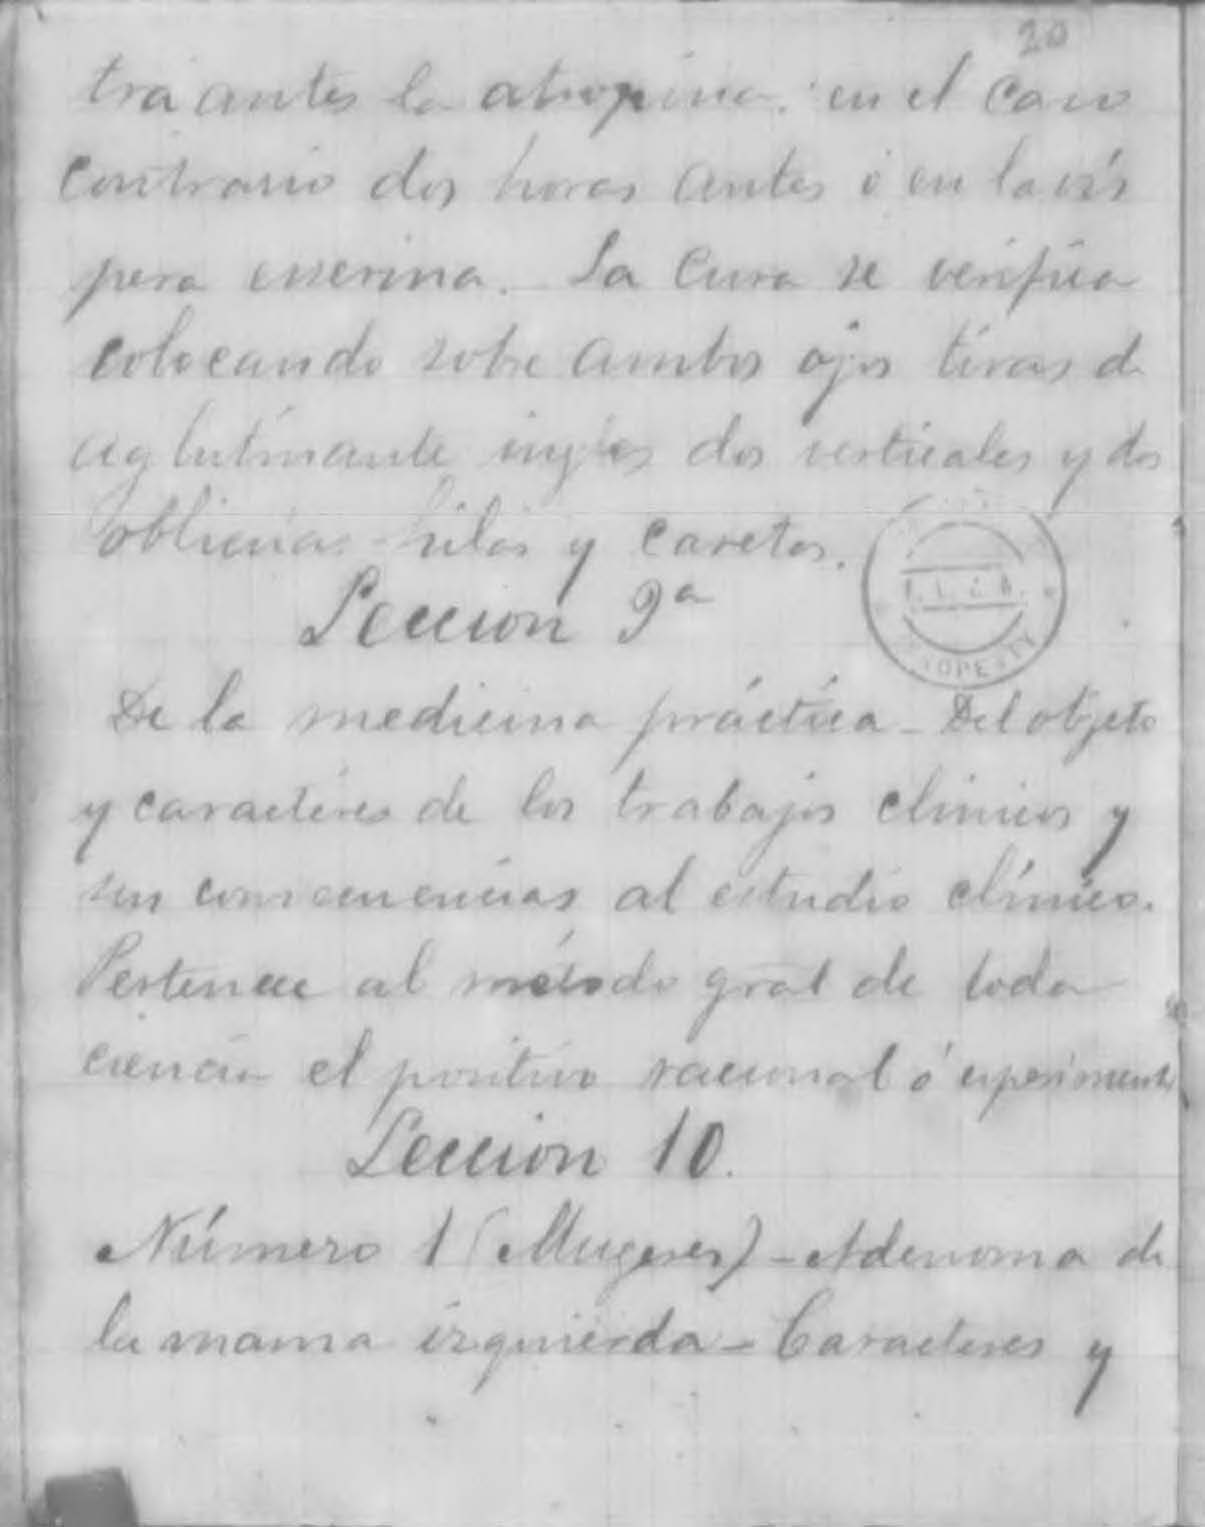 20
tra antes la atropina: en el caso
contrario dos horas antes ó en la vís
pera eserina. La cura se verifica
colocando sobre ambos ojos tiras de
aglutinante ingles dos verticales y dos
oblicuas hilas y caretas.
Leccion 9a
De la medicina práctica - Del objeto
y caractéres de los trabajos clinicos y
sus consecuencias al estudio clínico.
Pertenece al método gral de toda
ciencia el positivo racional ó esperiment
Leccion 10.
Número 1 (Mugeres) - Adenoma de
la mama izquierda - Caracteres y
PROPERTY